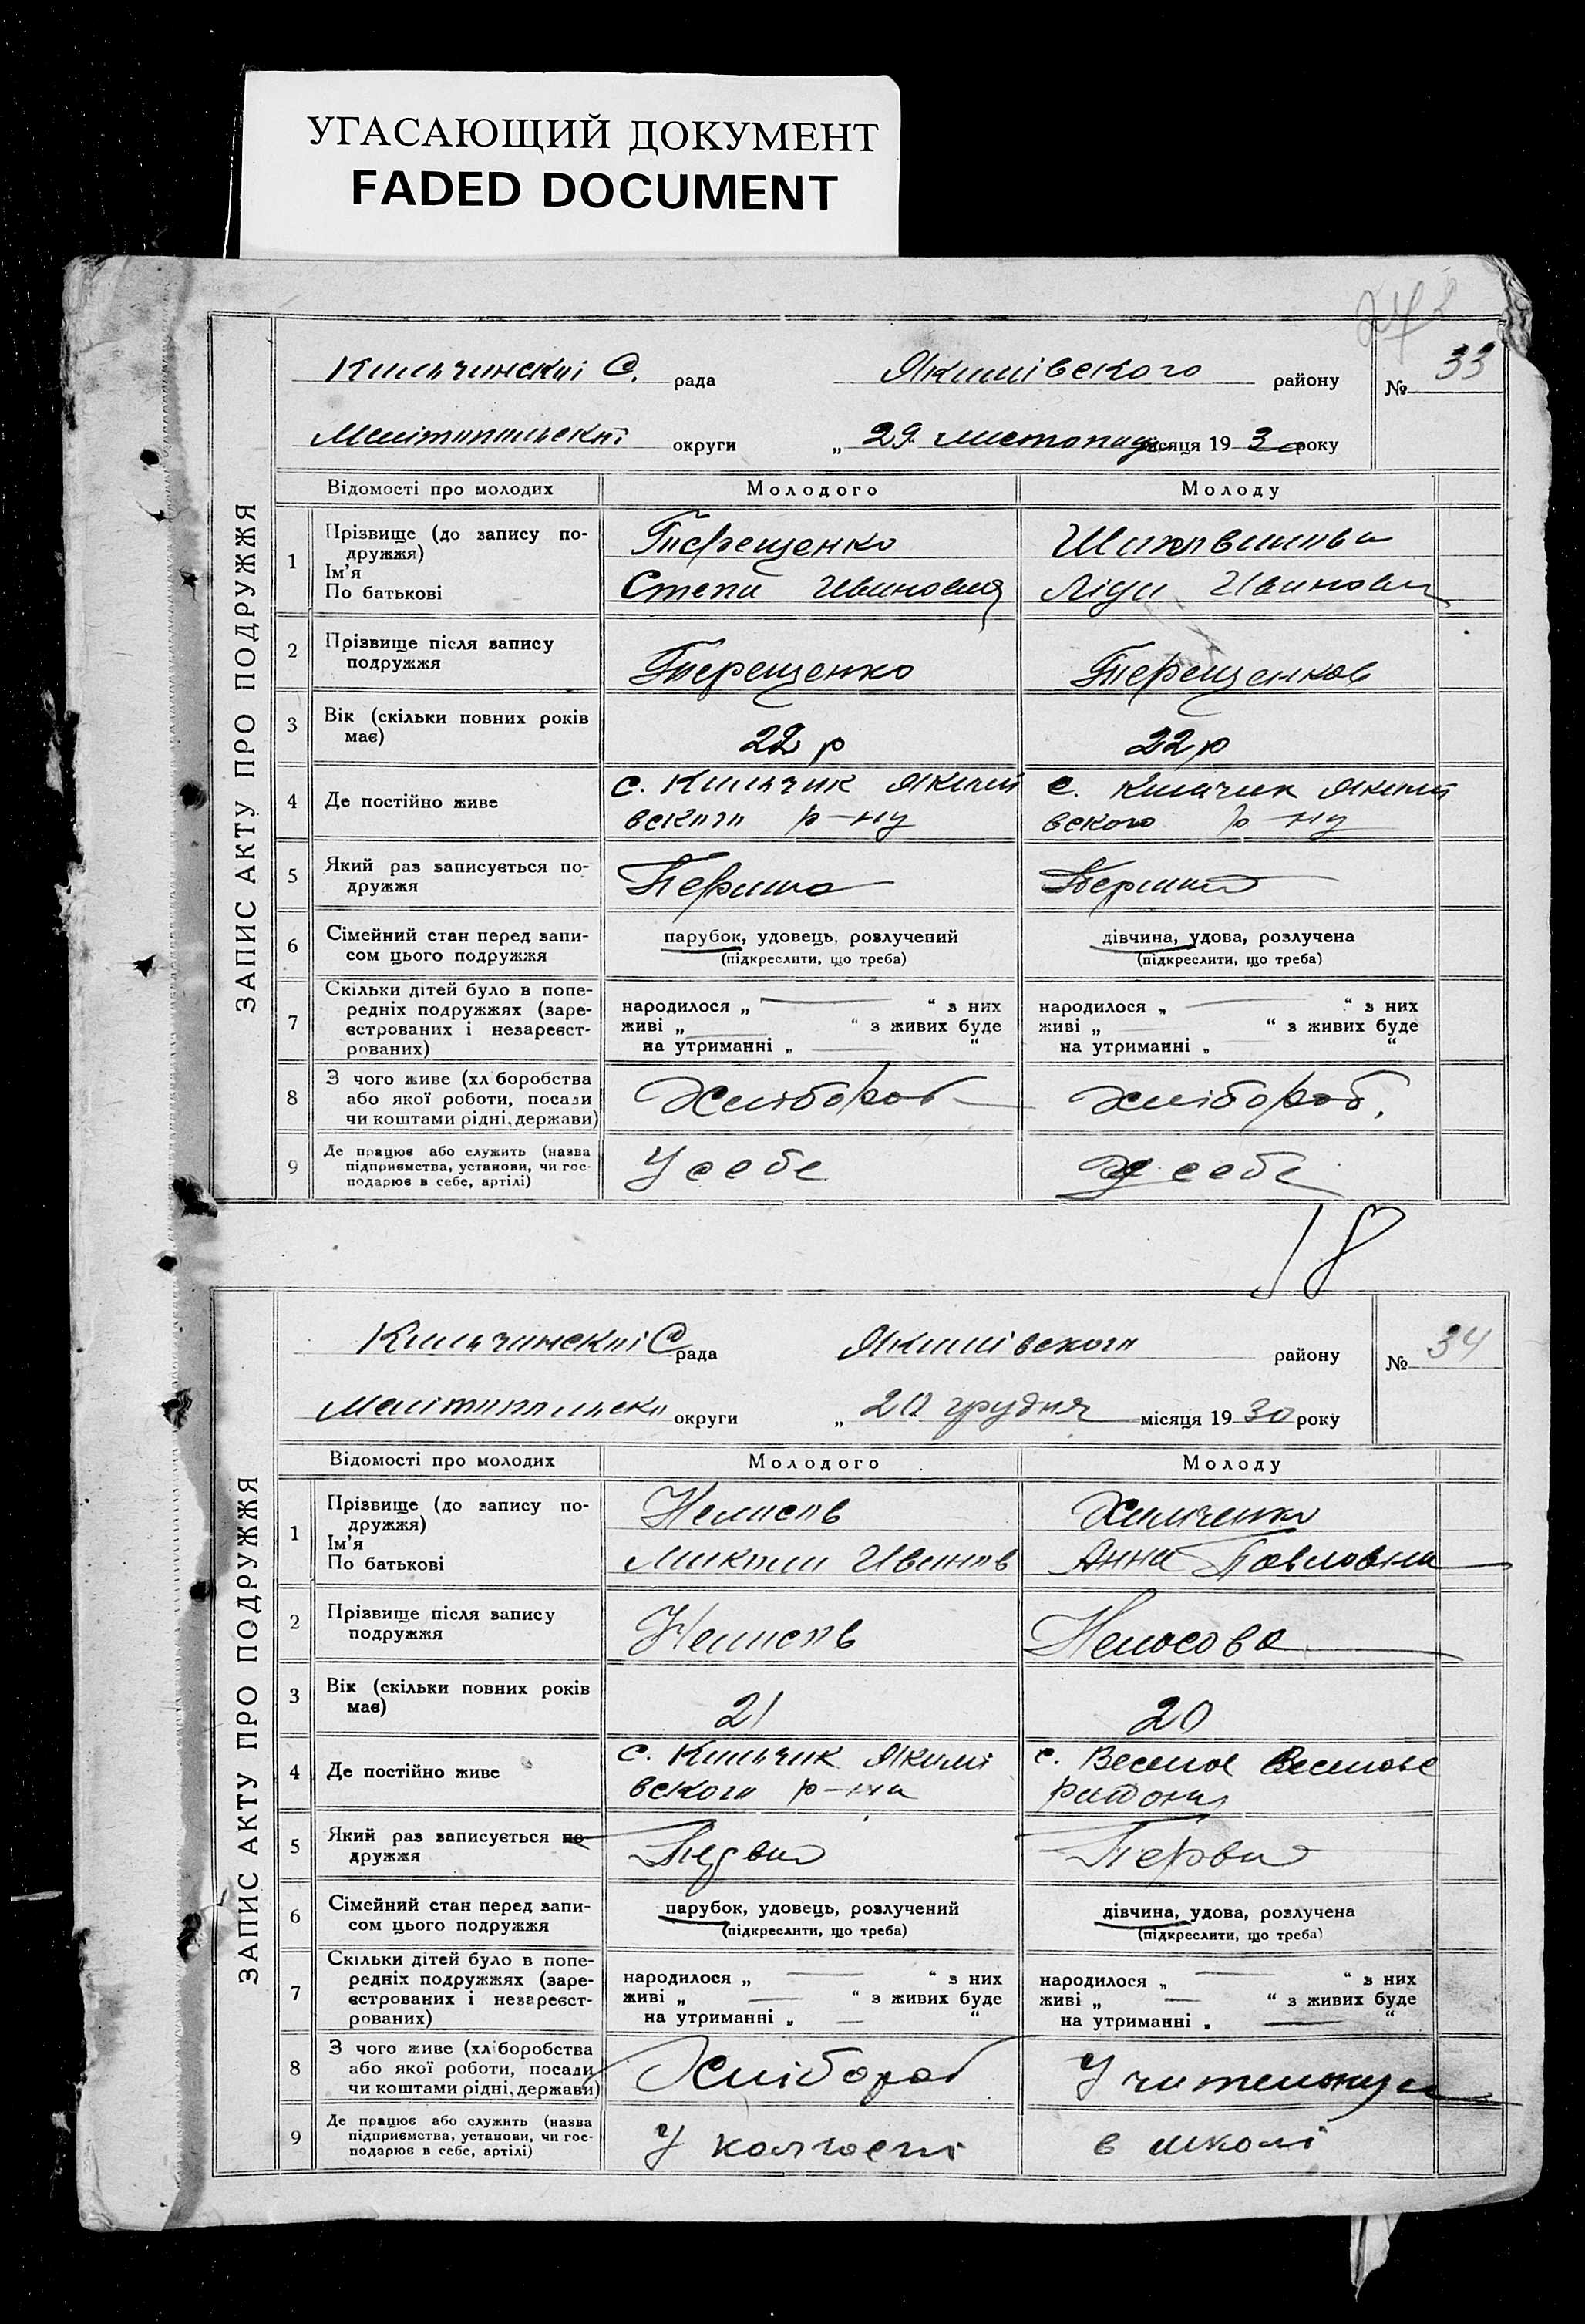 УГАСАЮЩИЙ ДОКУМЕНТ
FADED DOCUMENT
ЗАПИС АКТУ ПРО ПОДРУЖЖЯ
С. рада Якимівского району № 33
округи „ 29 листопада місяця 1930 року
Відомості про молодих Молодого Молоду
1 Прізвище (до запису по-
дружжя)
Ім'я
По батькові
Терещенко
Степа Иванович
Ліда Ивановн
2 Прізвище після запису
подружжя
Терещенко Терещенков
3 Вік (скільки повних років
має)
22 р 22 р
4 Де постійно живе
с. Кильчик Якимі
вского р-ну
с. Кильчик Якимі
вского р-ну
5 Який раз записується по-
дружжя
6 Сімейний стан перед запи-
сом цього подружжя
парубок, удовець, розлучений
(підкреслити, що треба)
дівчина, удова, розлучена
(підкреслити, що треба)
7 Скільки дітей було в попе-
редніх подружжях (заре-
єстрованих і незареєст-
рованих)
народилося „ “ з них
живі „ “ з живих буде
на утриманні „ “
народилося „ “ з них
живі „ “ з живих буде
на утриманні „ “
8 З чого живе (хліборобства
або якої роботи, посади
чи коштами рідні, держави)
Хлібороб Хлібороб.
9 Де працює або служить (назва
підприємства, установи, чи гос-
подарює в себе, артілі)
У себе У себе
18
ЗАПИС АКТУ ПРО ПОДРУЖЖЯ
С рада Якимівского району № 34
округи „ 20 грудня місяця 1930 року
Відомості про молодих Молодого Молоду
1 Прізвище (до запису по-
дружжя)
Ім'я
По батькові
Микола Иванов
Анна Павловна
2 Прізвище після запису
подружжя
Немосова
3 Вік (скільки повних років
має)
21 20
4 Де постійно живе
с. Кильчик Якимі
вского р-на
с. Веселое Веселове
района
5 Який раз записується по-
дружжя
Первий Перва
6 Сімейний стан перед запи-
сом цього подружжя
парубок, удовець, розлучений
(підкреслити, що треба)
дівчина, удова, розлучена
(підкреслити, що треба)
7 Скільки дітей було в попе-
редніх подружжях (заре-
єстрованих і незареєст-
рованих)
народилося „ “ з них
живі „ “ з живих буде
на утриманні „ “
народилося „ “ з них
живі „ “ з живих буде
на утриманні „ “
8 З чого живе (хліборобства
або якої роботи, посади
чи коштами рідні, держави)
Хлібороб
9 Де працює або служить (назва
підприємства, установи, чи гос-
подарює в себе, артілі)
У колгоспі в школі